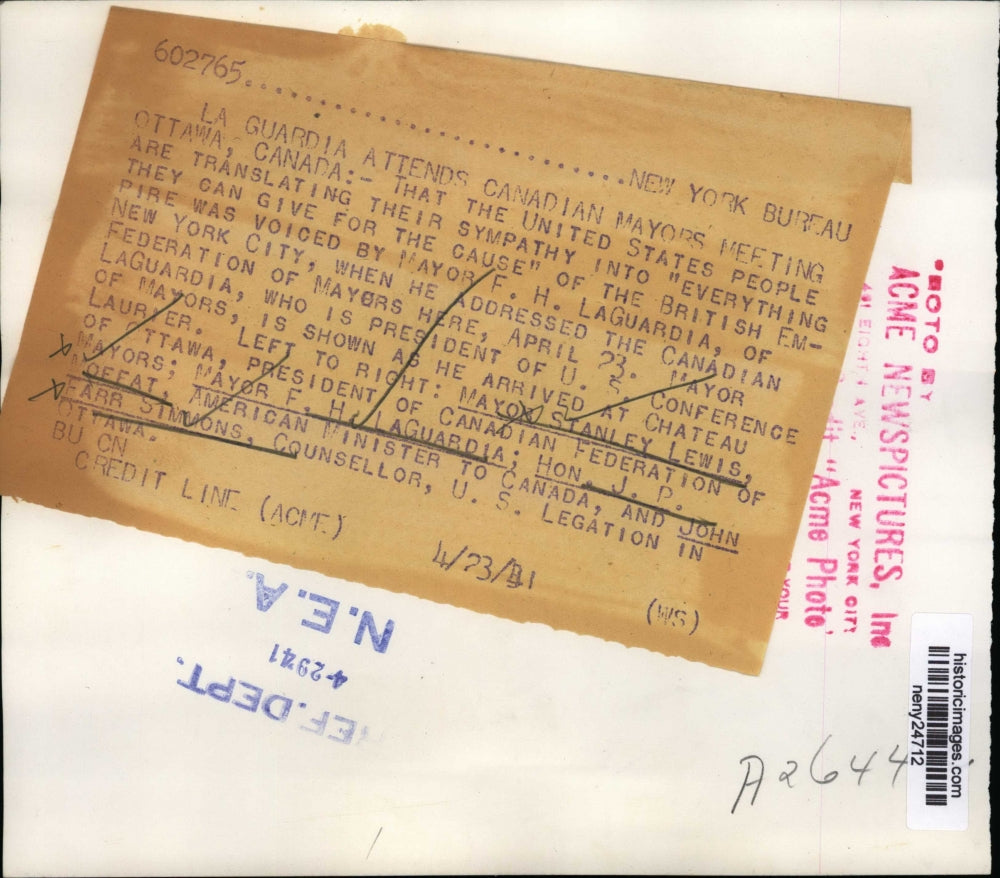 602765..............................NEW YORK BUREAU
LA GUARDIA ATTENDS CANADIAN MAYORS' MEETING
OTTAWA, CANADA:- THAT THE UNITED STATES PEOPLE
ARE TRANSLATING THEIR SYMPATHY INTO "EVERYTHING
THEY CAN GIVE FOR THE CAUSE" OF THE BRITISH EM-
PIRE WAS VOICED BY MAYOR F. H. LAGUARDIA, OF
NEW YORK CITY, WHEN HE ADDRESSED THE CANADIAN
FEDERATION OF MAYORS HERE, APRIL 23. MAYOR
LAGUARDIA, WHO IS PRESIDENT OF U. S. CONFERENCE
OF MAYORS, IS SHOWN AS HE ARRIVED AT CHATEAU
LAURIER. LEFT TO RIGHT: MAYOR STANLEY LEWIS,
OF OTTAWA, PRESIDENT OF CANADIAN FEDERATION OF
MAYORS; MAYOR F. H. LAGUARDIA; HON. J. P.
MOFFAT, AMERICAN MINISTER TO CANADA, AND JOHN
FARR SIMMONS, COUNSELLOR, U. S. LEGATION IN
OTTAWA.
BU CN
CREDIT LINE (ACME) 4/23/41 (WS)
PHOTO BY
ACME NEWSPICTURES, Inc
461 EIGHTH AVE., NEW YORK CITY
"Acme Photo"
YOUR
REF. DEPT.
4-2941
N.E.A.
historicimages.com
neny24712
A2644